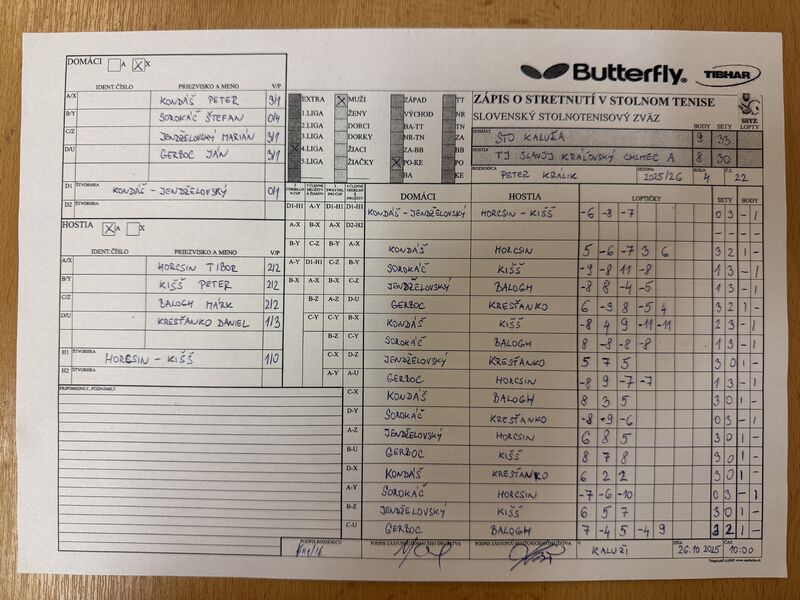 DOMÁCI A X X
Butterfly® TIBHAR
IDENT.ČÍSLO PRIEZVISKO A MENO V/P
A/X KONDÁŠ PETER 3/1
B/Y SOROKÁČ ŠTEFAN 0/4
C/Z JENDŽELOVSKÝ MARIÁN 3/1
D/U GERBOC JÁN 3/1
D1 ŠTVORHRA KONDÁŠ - JENDŽELOVSKÝ 0/1
D2 ŠTVORHRA
EXTRA X MUŽI ZÁPAD TT
1.LIGA ŽENY VÝCHOD NR
2.LIGA DORCI BA-TT TN
3.LIGA DORKY NR-TN ZA
X 4.LIGA ŽIACI ZA-BB BB
5.LIGA ŽIAČKY X PO-KE PO
BA KE
ZÁPIS O STRETNUTÍ V STOLNOM TENISE
SLOVENSKÝ STOLNOTENISOVÝ ZVÄZ SSTZ
BODY SETY LOPTY
DOMÁCI STO KALUŽA 9 33
HOSTIA TJ SLAVOJ KRÁĽOVSKÝ CHLMEC A 8 30
ROZHODCA PETER KRÁLIK SEZÓNA 2025/26 KOLO 4 Č.Z 22
HOSTIA X A X
IDENT.ČÍSLO PRIEZVISKO A MENO V/P
A/X HORCSIN TIBOR 2/2
B/Y KIŠŠ PETER 2/2
C/Z BALOGH MÁRK 2/2
D/U KRESŤANKO DANIEL 1/3
H1 ŠTVORHRA HORCSIN - KIŠŠ 1/0
H2 ŠTVORHRA
PRIPOMIENKY, POZNÁMKY
DOMÁCI HOSTIA LOPTIČKY SETY BODY
D1-H1 A-Y D1-H1 D1-H1 KONDÁŠ - JENDŽELOVSKÝ HORCSIN - KIŠŠ -6 -8 -7 0 3 - 1
A-X B-X A-X D2-H2 - - - -
B-Y C-Z B-Y A-X KONDÁŠ HORCSIN 5 -6 -7 3 6 3 2 1 -
A-Y D1-H1 C-Z B-Y SOROKÁČ KIŠŠ -9 -8 11 -8 1 3 - 1
B-X A-X B-X C-Z JENDŽELOVSKÝ BALOGH -8 8 -4 -5 1 3 - 1
B-Z A-Z D-U GERBOC KRESŤANKO 6 -9 8 -5 4 3 2 1 -
C-Y C-Y B-X KONDÁŠ KIŠŠ -8 4 9 -11 -11 2 3 - 1
B-Z C-Y SOROKÁČ BALOGH 8 -8 -8 -8 1 3 - 1
C-X D-Z JENDŽELOVSKÝ KRESŤANKO 5 7 5 3 0 1 -
A-Y A-U GERBOC HORCSIN -8 9 -7 -7 1 3 - 1
C-X KONDÁŠ BALOGH 8 3 5 3 0 1 -
D-Y SOROKÁČ KRESŤANKO -8 -9 -6 0 3 - 1
A-Z JENDŽELOVSKÝ HORCSIN 6 8 5 3 0 1 -
B-U GERBOC KIŠŠ 8 7 8 3 0 1 -
D-X KONDÁŠ KRESŤANKO 6 2 2 3 0 1 -
A-Y SOROKÁČ HORCSIN -7 -6 -10 0 3 - 1
B-Z JENDŽELOVSKÝ KIŠŠ 6 5 7 3 0 1 -
C-U GERBOC BALOGH 7 -4 5 -4 9 3 2 1 -
PODPIS ROZHODCU PODPIS ZÁSTUPCU DOMÁCEHO DRUŽSTVA PODPIS ZÁSTUPCU HOSTUJÚCEHO DRUŽSTVA V KALUŽI DŇA 26.10.2025 ČAS 10:00